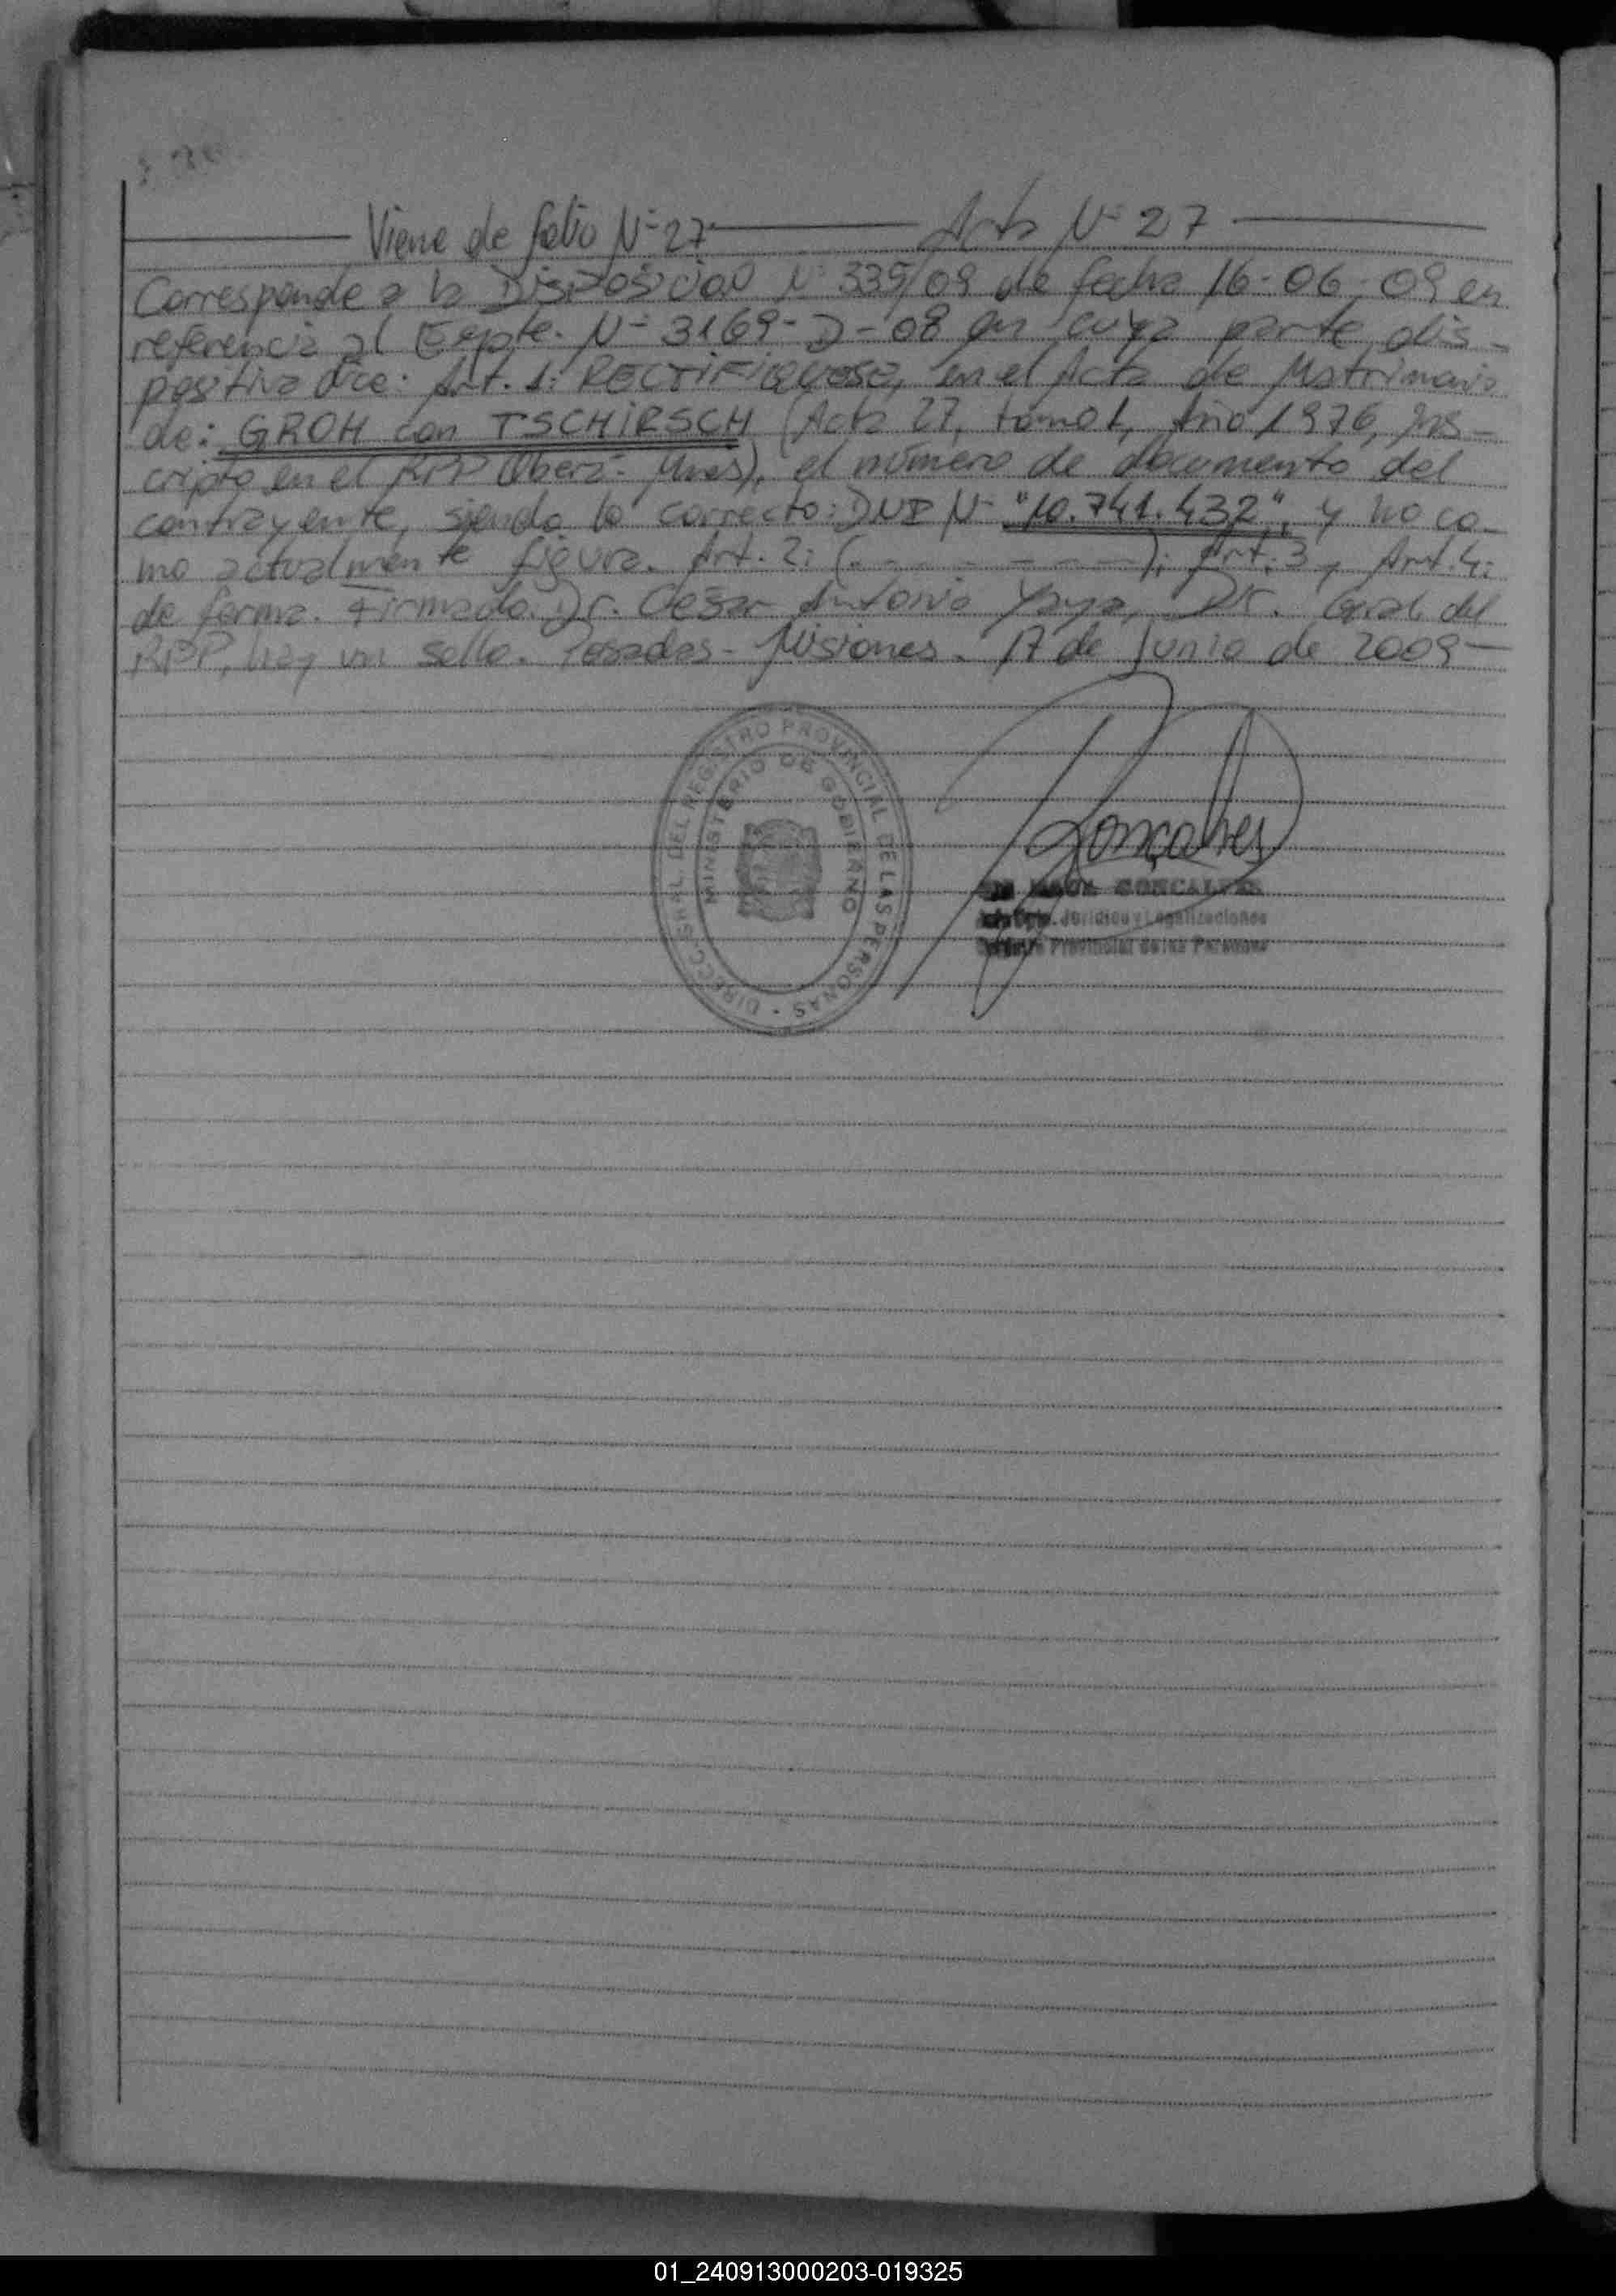 Viene de folio N° 27 Acta N° 27
Corresponde a la DISPOSICION N° 335/09 de fecha 16-06-09 en
referencia al Expte. N° 3169-D-08 en cuya parte dis-
positiva dice: Art. 1: RECTIFIQUESE, en el Acta de Matrimonio
de: GROH con TSCHIRSCH (Acta 27, tomo 1, Año 1976, Ins-
cripto en el RPP Oberá-Mnes), el número de documento del
contrayente, siendo lo correcto: DNI N° "10.741.432", y no co-
mo actualmente figura. Art. 2: (- - - - - - -); Art. 3, Art. 4:
de forma. Firmado. Dr. Cesar Antonio Yaya, Dir. Gral. del
RPP, hay un sello. Posadas - Misiones. 17 de Junio de 2009-
DIRECC. GRAL. DEL REGISTRO PROVINCIAL DE LAS PERSONAS
MINISTERIO DE GOBIERNO
Gonçalves
GONCALVES
Jurídica y Legalizaciones
Provincial de las Personas
01_240913000203-019325